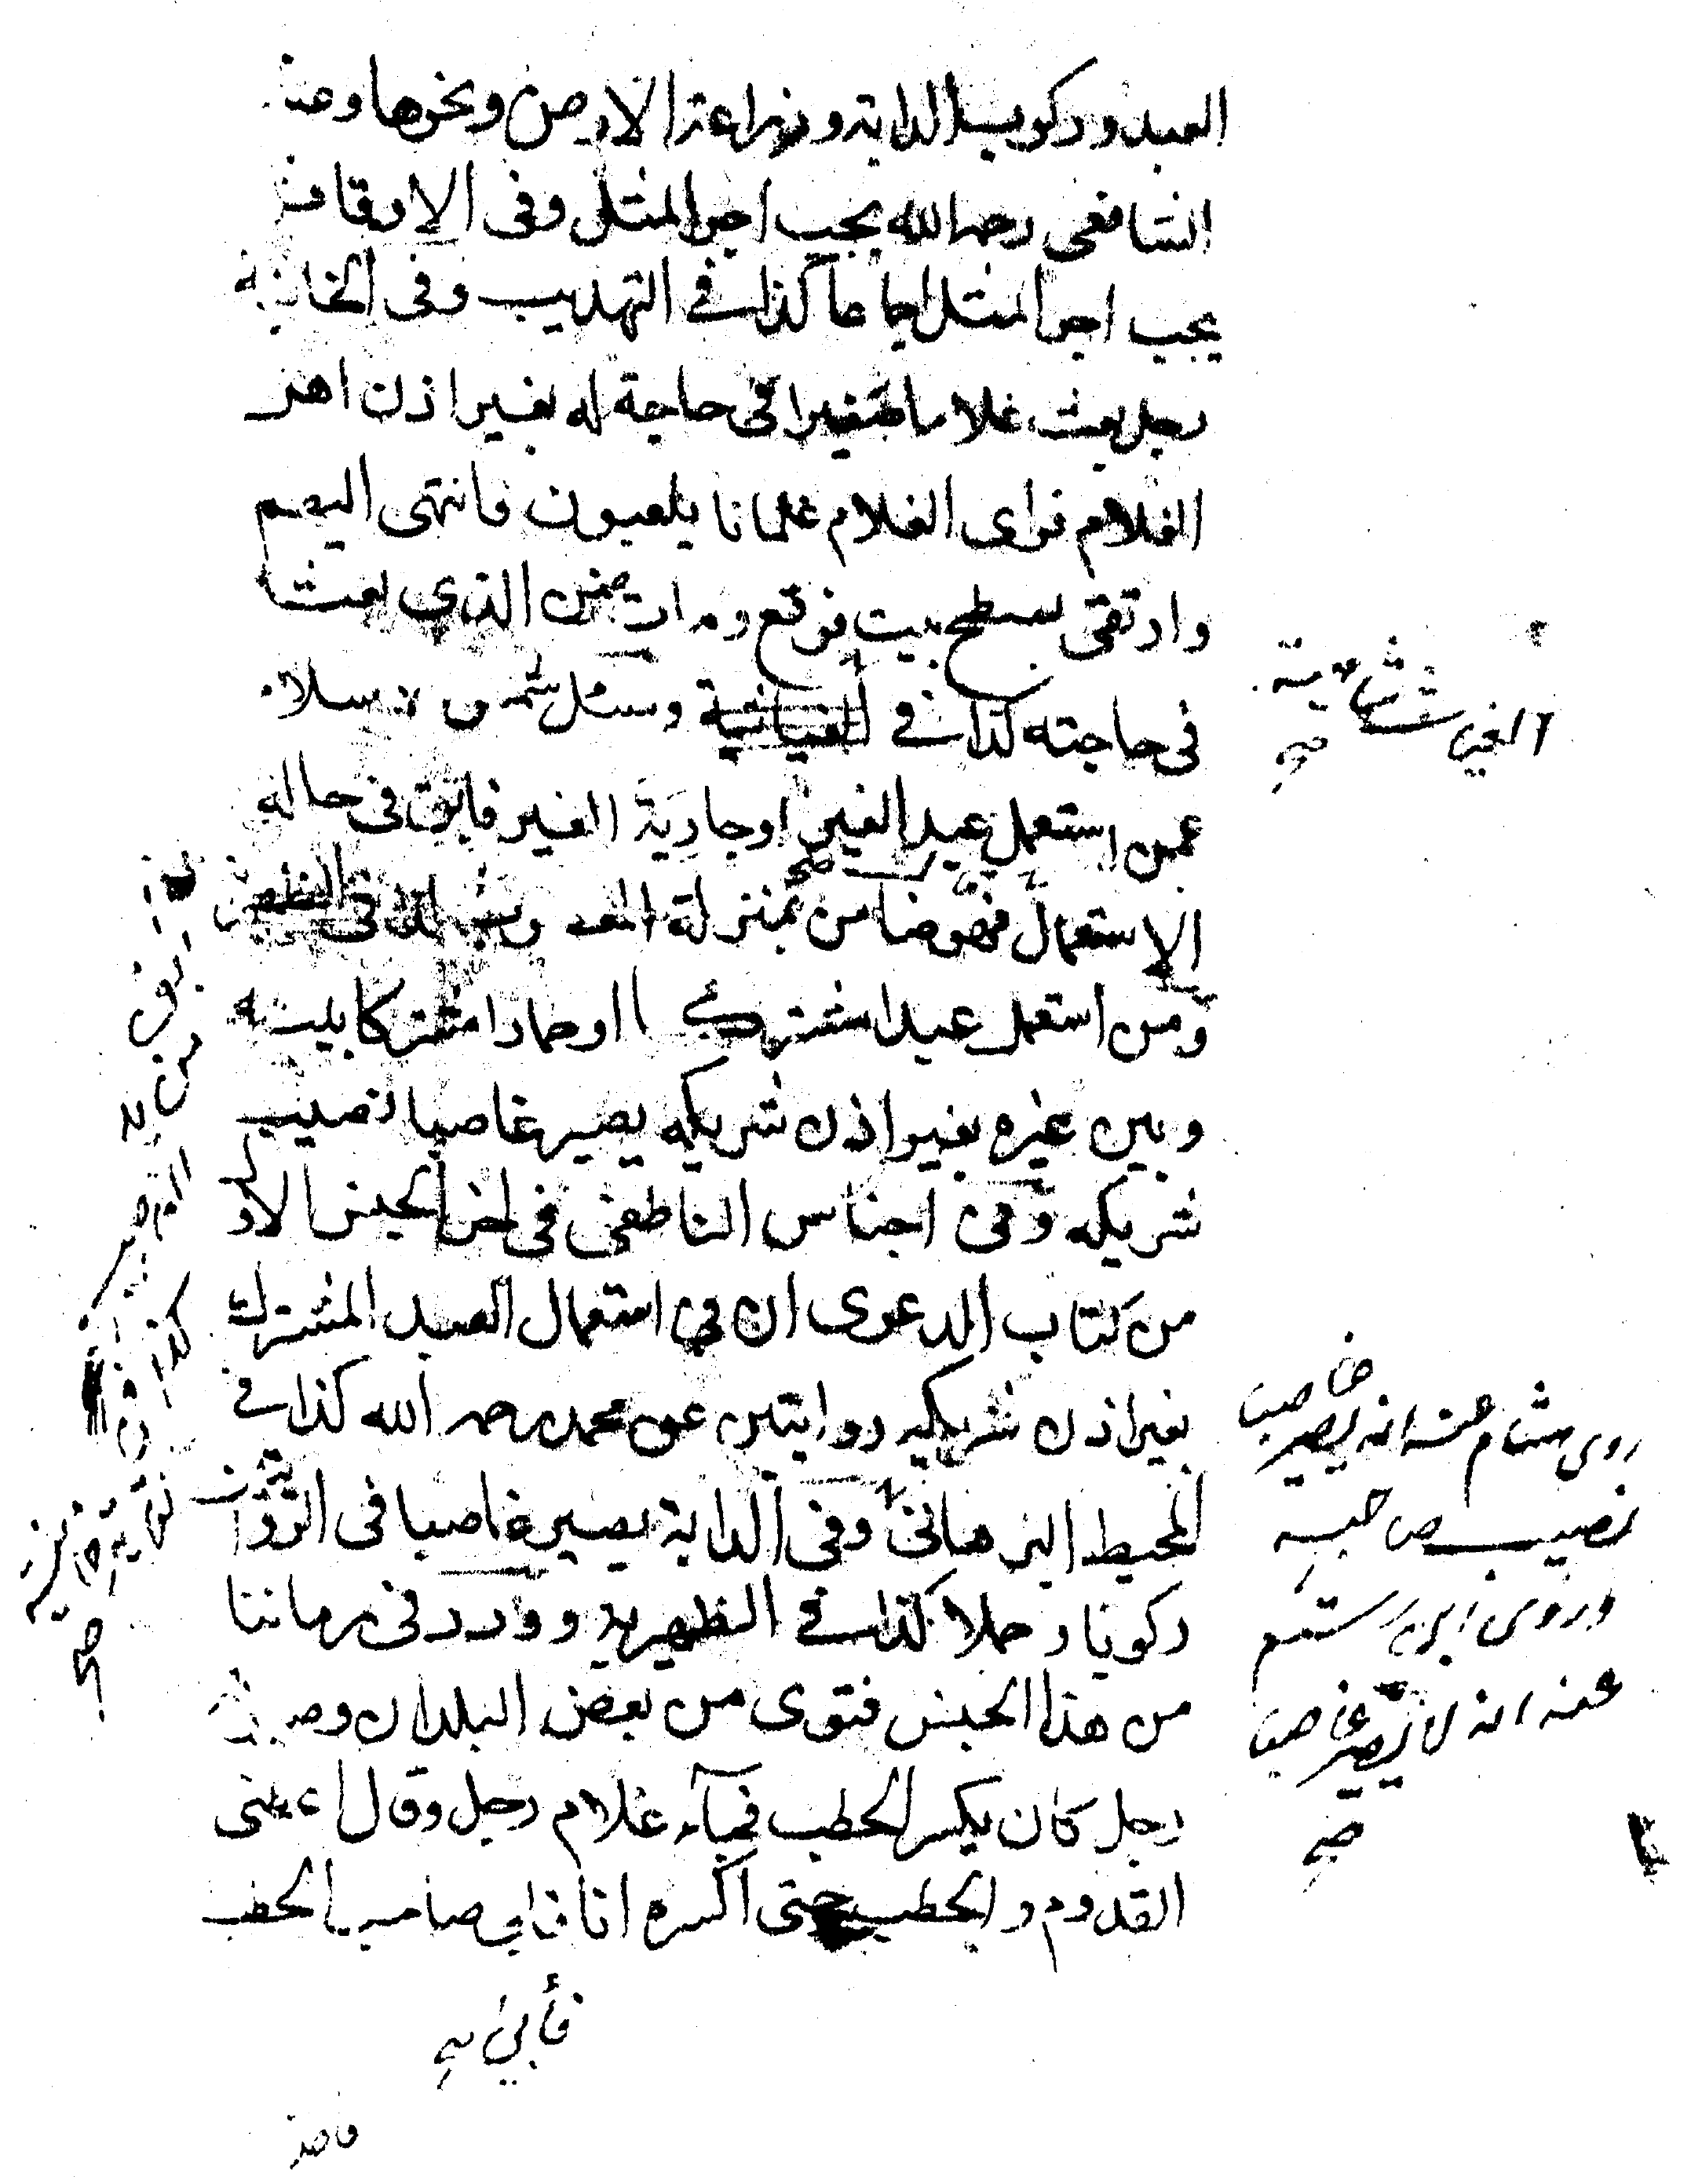 العبد وركوب الدابة وزراعة الارض ونحوها وعند
الشافعى رحمه الله يجب اجر المثل وفى الاوقاف
يجب اجر المثل اجماعا كذا فى التهذيب وفى الخانية
رجل بعث غلاما صغيرا فى حاجة له بغير اذن اهل
الغلام فراى الغلام غلمانا يلعبون فانتهى اليهم
وارتقى سطح بيت فوقع ومات ضمن الذى بعثه
فى حاجته كذا فى الغياثية وسئل شمس الاسلام
عمن استعمل عبد الغير او جارية الغير فابق فى حالة
الاستعمال فهو ضامن بمنزلة المغصوب كذا فى الظهيرية
ومن استعمل عبدا مشتركا او حمارا مشتركا بينه
وبين غيره بغير اذن شريكه يصير غاصبا نصيب
شريكه وفى اجناس الناطفى فى اخر الجنس الاول
من كتاب الدعوى ان فى استعمال العبد المشترك
بغير اذن شريكه روايتين عن محمد رحمه الله كذا فى
المحيط البرهانى وفى الدابة يصير غاصبا فى الروايتين
ركوبا وحملا كذا فى الظهيرية وورد فى زماننا
من هذا الجنس فتوى من بعض البلدان وصورته
رجل كان يكسر الحطب فجاء غلام رجل وقال اعطنى
القدوم والحطب حتى اكسره انا فابى صاحب الحطب
الغير
صح
روى هشام عنه انه يصير غاصبا
نصيب صاحبه
وروى ابن رستم
عنه انه لا يصير غاصبا
صح
ابق
من يد
الغاصب
كذا فى
صح
فأبى